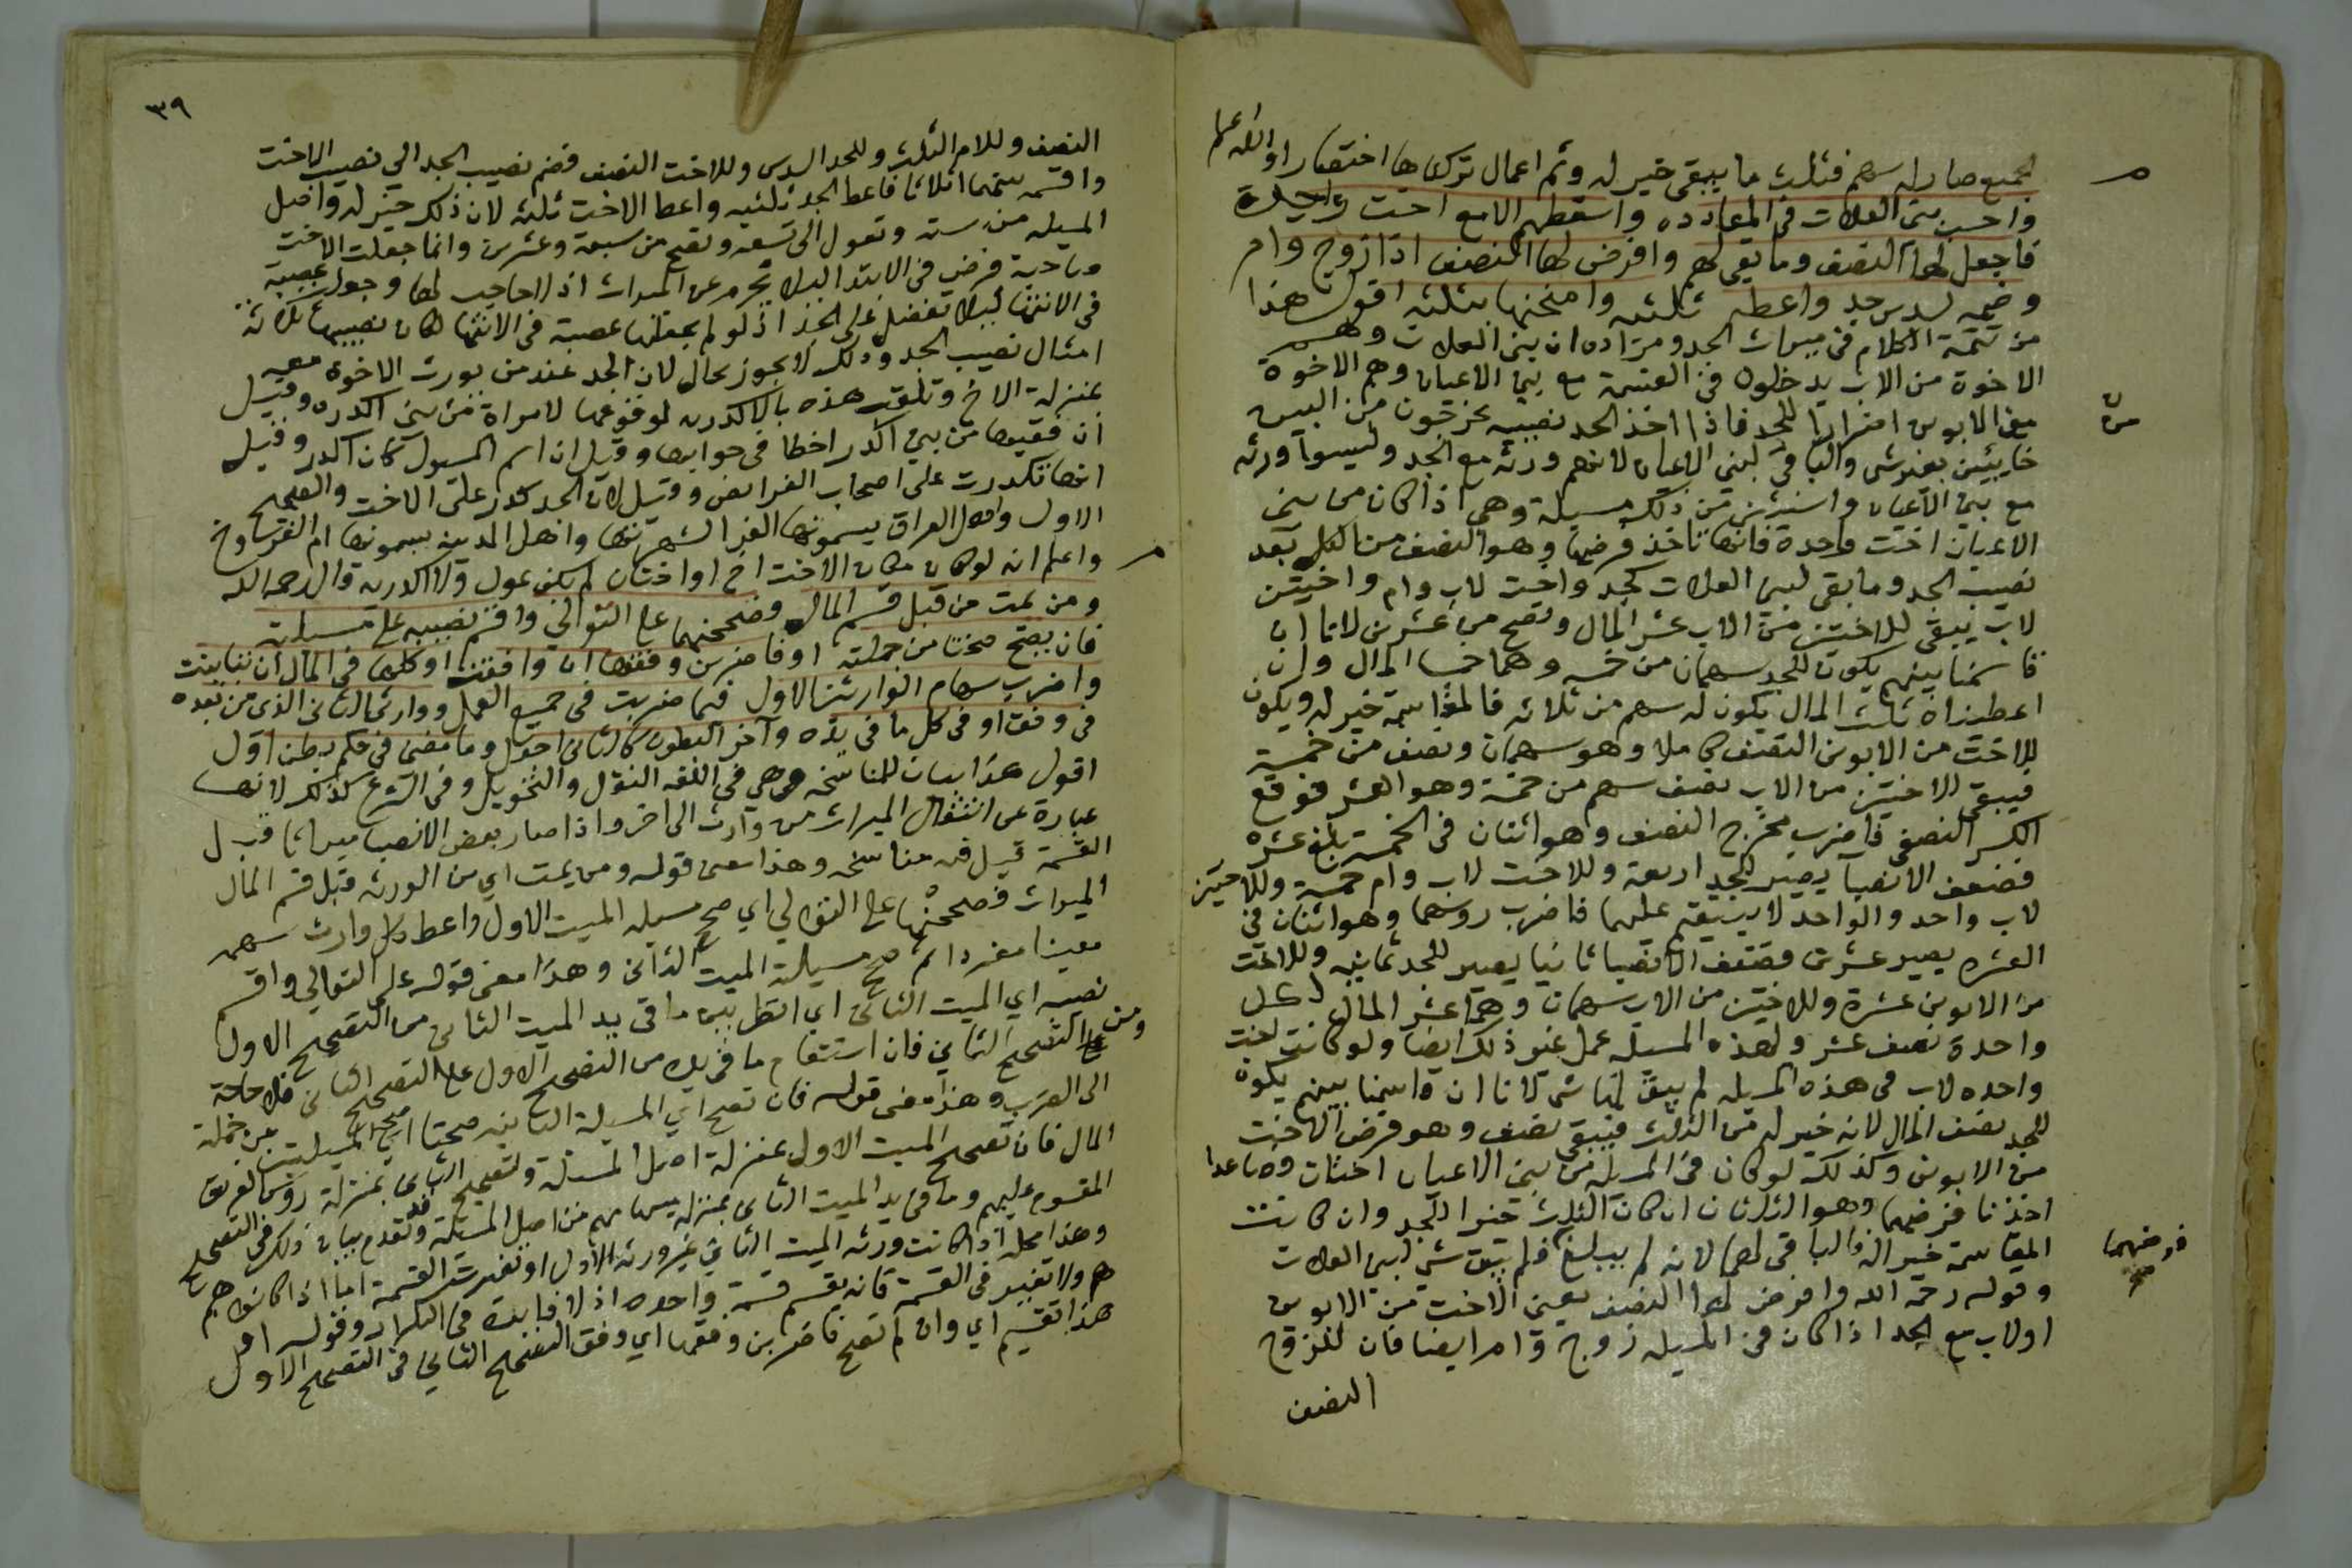 فجميع صار له سهم فثلث ما يبقى خير له وثم اعمال تركناها اختصارا والله اعلم
واحسب بنى العلات فى المعادده واسقطهم الا مع اخت واحدة
فاجعل لها النصف وما بقى لهم وافرض لها النصف اذا زوج وام
وضمه لسدس جد واعطه ثلثيه وامنحنها ثلثه اقول هذا
من تتمة الكلام فى ميراث الجد ومراده ان بنى العلات وهم
الاخوة من الاب يدخلون فى القسمة مع بنى الاعيان وهم الاخوة
من الابوين اضرارا للجد فاذا اخذ الجد نصيبه يخرجون من البين
خايبين بغير شى والباقى لبنى الاعيان لانهم ورثه مع الجد وليسوا ورثه
مع بنى الاعيان واستثنى من ذلك مسيلة وهى اذا كان من بنى
الاعيان اخت واحدة فانها تاخذ فرضها وهو النصف من الكل بعد
نصيب الجد وما بقى لبنى العلات كجد واخت لاب وام واختين
لاب يبقى للاختين من الاب عشر المال وتصح من عشرين لانا ان
قاسمنا بينهم يكون للجد سهمان من خمسه وهما خمسا المال وان
اعطيناه ثلث المال يكون له سهم من ثلاثه فالمقاسمة خير له ويكون
للاخت من الابوين النصف كاملا وهو سهمان ونصف من خمسة
فيبقى للاختين من الاب نصف سهم من خمسة وهو العشر فوقع
الكسر النصفى فاضرب مخرج النصف وهو اثنان فى الخمسة يبلغ عشره
فضعف الانصبا يصير للجد اربعة وللاخت لاب وام خمسة وللاختين
لاب واحد والواحد لا يستقيم عليهما فاضرب روسهما وهو اثنان فى
العشره يصير عشرين فضعف الانصبا ثانيا يصير للجد ثمانيه وللاخت
من الابوين عشرة وللاختين من الاب سهمان وهما عشر المال لكل
واحدة نصف عشر ولهذه المسيله عمل غير ذلك ايضا ولو كانت اخت
واحده لاب فى هذه المسيله لم يبق لها شى لانا ان قاسمنا بينهم يكون
للجد نصف المال لانه خير له من الثلث فيبقى نصف وهو فرض الاخت
من الابوين وكذلك لو كان فى المسيله من بنى الاعيان اختان فصاعدا
اخذتا فرضهما وهو الثلثان ان كان الثلث خيرا للجد وان كانت
المقاسمة خير اله فالباقى لهما لانه لم يبلغ فلم يبق شى لبنى العلات
فرضهما
وقوله رحمه الله وافرض لها النصف يعنى الاخت من الابوين
او لاب مع الجد اذا كان فى المسيله زوج وام ايضا فان للزوج
النصف
٣٩
النصف وللام الثلث وللجد السدس وللاخت النصف فضم نصيب الجد الى نصيب الاخت
واقسمه بينهما اثلاثا فاعط الجد ثلثيه واعط الاخت ثلثه لان ذلك خير له واصل
المسيله من سته وتعول الى تسعه وتصح من سبعة وعشرين وانما جعلت الاخت
صاحبة فرض فى الابتدا ليلا تحرم عن الميراث اذ لا حاجب لها وجعلت عصبة
فى الانتها ليلا تفضل على الجد اذ لو لم نجعلها عصبة فى الانتها لكان نصيبها ثلاثة
امثال نصيب الجد وذلك لا يجوز بحال لان الجد عند من يورث الاخوه معه
بمنزلة الاخ وتلقب هذه بالاكدريه لوقوعها لامراة من بنى اكدره وقيل
ان فقيها من بنى اكدر اخطا فى جوابها وقيل ان اسم المسيول كان اكدر وقيل
انها تكدرت على اصحاب الفرايض وقيل لان الجد كدر على الاخت والصحيح
الاول واهل العراق يسمونها الغرا لشهرتها واهل المدينه يسمونها ام الفروخ
واعلم انه لو كان مكان الاخت اخ او اختان لم يكن عول ولا اكدريه قال رحمه الله
ومن يمت من قبل قسم المال وصححنها على التوالي واقسم نصيبه على مسيلته
فان يصح صحتا من جملته او فاضربن وفقها ان وافقت او كلها فى المال ان تباينت
واضرب سهام الوارثين الاول فيما ضربت فى جميع العمل ووارثى الثانى الذى من بعده
فى وفق او فى كل ما فى يده وآخر البطون كالثانى اجعل وما مضى فى حكم بطن اول
اقول هذا بيان المناسخه وهى فى اللغه النقل والتحويل وفى الشرع كذلك لانها
عبارة عن انتقال الميراث من وارث الى اخر واذا صار بعض الانصبا ميراثا قبل
القسمة قيل فيه مناسخه وهذا معنى قوله ومن يمت اي من الورثه قبل قسم المال
الميراث فصححنها على التوالي اي صحح مسيله الميت الاول واعط كل وارث سهمه
معينا مفردا ثم صحح مسيلة الميت الثانى وهذا معنى قوله على التوالي واقسم
نصيبه اي الميت الثانى اي انظر بين ما فى يد الميت الثانى من التصحيح الاول
وبين التصحيح الثاني فان استقام ما فى يده من التصحيح الاول على التصحيح الثانى فلا حاجة
الى الضرب وهذا معنى قوله فان تصح اي المسيلة الثانيه صحتا اي المسيلتين من جملة
المال فان تصحيح الميت الاول بمنزلة اصل المسئلة وتصحيح الثانى بمنزلة روس الفريق
المقسوم عليهم وما فى يد الميت الثانى بمنزله سهامهم من اصل المسيلة وقد تقدم بيان ذلك فى التصحيح
وهذا محله اذا كانت ورثه الميت الثاني غير ورثه الاول او تغيرت القسمة اما اذا كانوا هم
هم ولا تغيير فى القسمة فانه يقسم قسمة واحده اذ لا فايدة فى التكرار وقوله او
هذا تقسيم اي وان لم تصح فاضربن وفقها اي وفق التصحيح الثاني فى التصحيح الاول